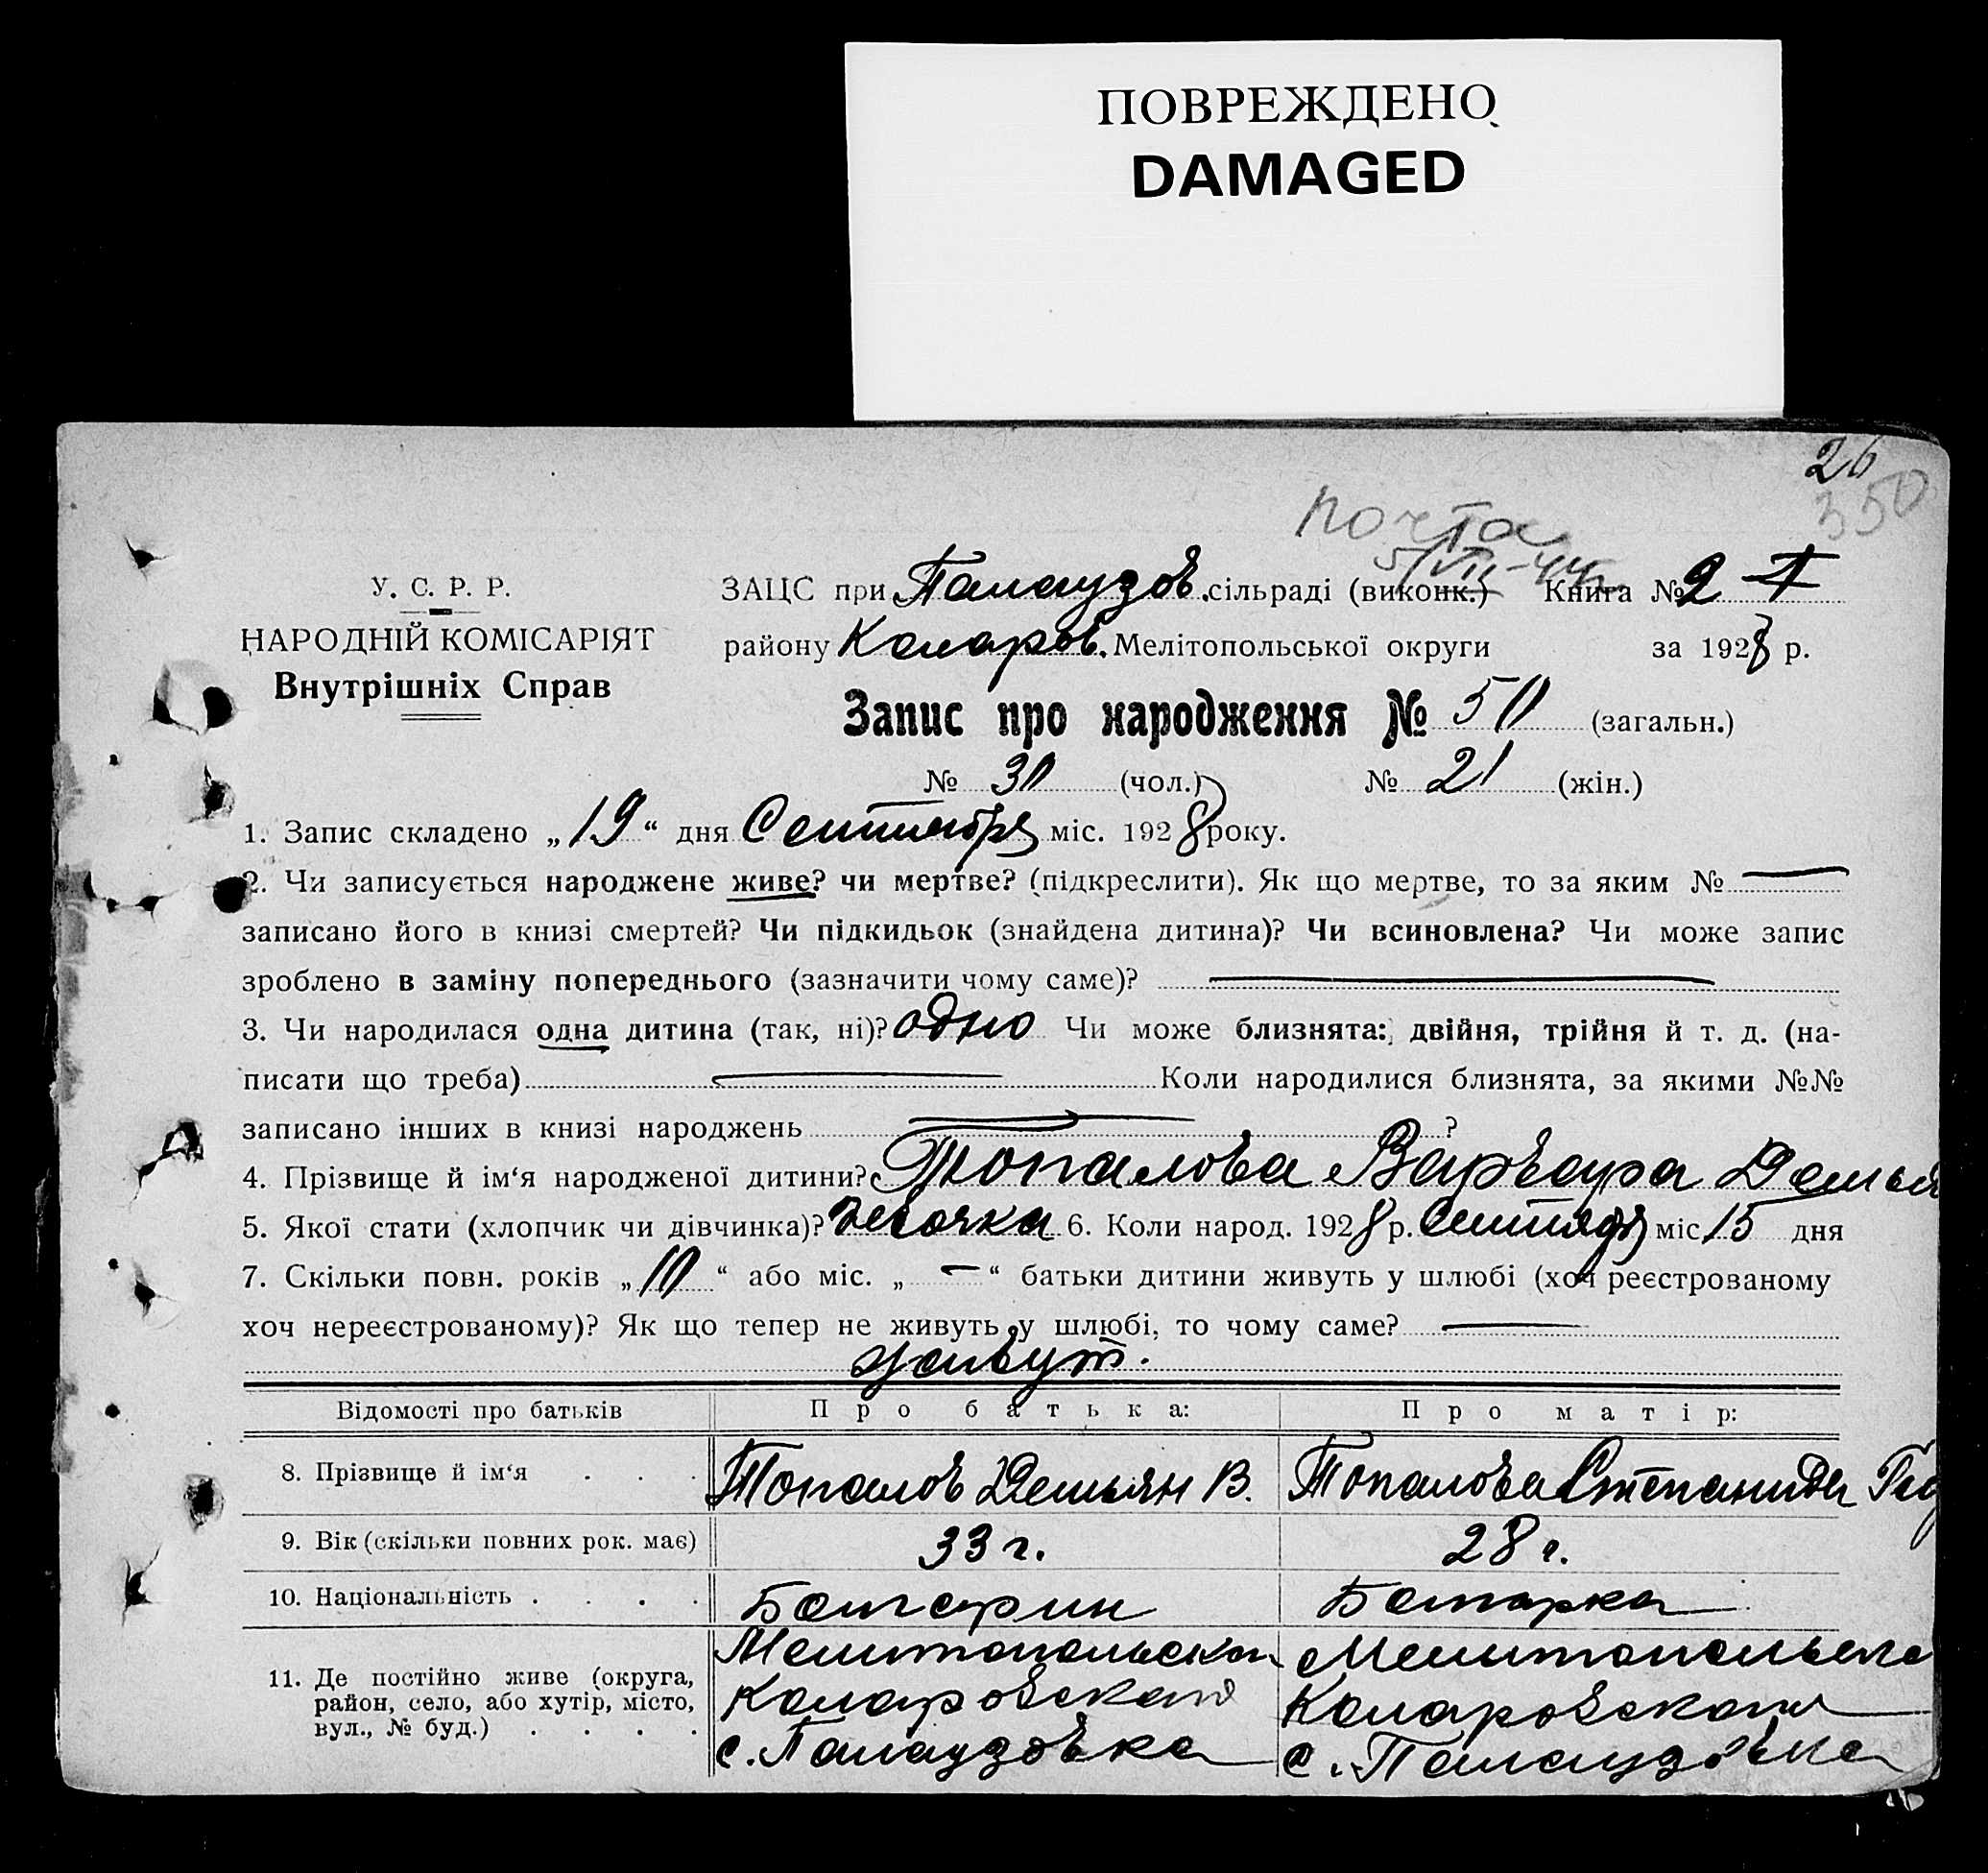 ПОВРЕЖДЕНО
DAMAGED
26
350
почта
5/VII-44г.
У. С. Р. Р.
НАРОДНІЙ КОМІСАРІЯТ
Внутрішніх Справ
ЗАЦС при Палаузов. сільраді (виконк.) Книга № 2
району Коларов. Мелітопольської округи за 1928 р.
Запис про народження № 50 (загальн.)
№ 30 (чол.) № 21 (жін.)
1. Запис складено „19“ дня Сентября міс. 1928 року.
2. Чи записується народжене живе? чи мертве? (підкреслити). Як що мертве, то за яким №
записано його в книзі смертей? Чи підкидьок (знайдена дитина)? Чи всиновлена? Чи може запис
зроблено в заміну попереднього (зазначити чому саме)?
3. Чи народилася одна дитина (так, ні)? одно Чи може близнята: двійня, трійня й т. д. (на-
писати що треба) Коли народилися близнята, за якими №№
записано інших в книзі народжень ?
4. Прізвище й ім‘я народженої дитини? Топалова Варвара Демья
5. Якої стати (хлопчик чи дівчинка)? девочка 6. Коли народ. 1928 р. Сентября міс. 15 дня
7. Скільки повн. років „10“ або міс. „ — “ батьки дитини живуть у шлюбі (хоч реєстрованому
хоч нереєстрованому)? Як що тепер не живуть у шлюбі, то чому саме?
живут.
Відомості про батьків Про батька: Про матір:
8. Прізвище й ім‘я Топалов Демьян В. Топалова Степанида
9. Вік (скільки повних рок. має) 33 г. 28 г.
10. Національність Болгарин Болгарка
11. Де постійно живе (округа, район, село, або хутір, місто, вул., № буд.)
Мелитопольская Мелитопольска
Коларовская Коларовская
с. Палаузовка с. Палаузовка